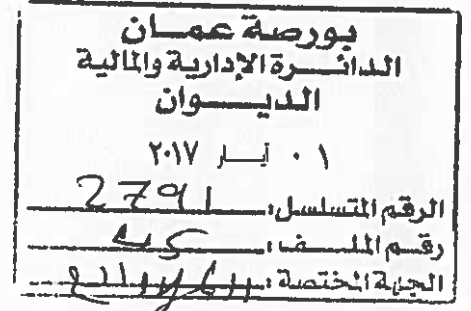 بورصة عمان
الدائرة الإدارية والمالية
الديوان
٠١ أيار ٢٠١٧
الرقم المتسلسل: 2791
رقم الملف:
الجهة المختصة: